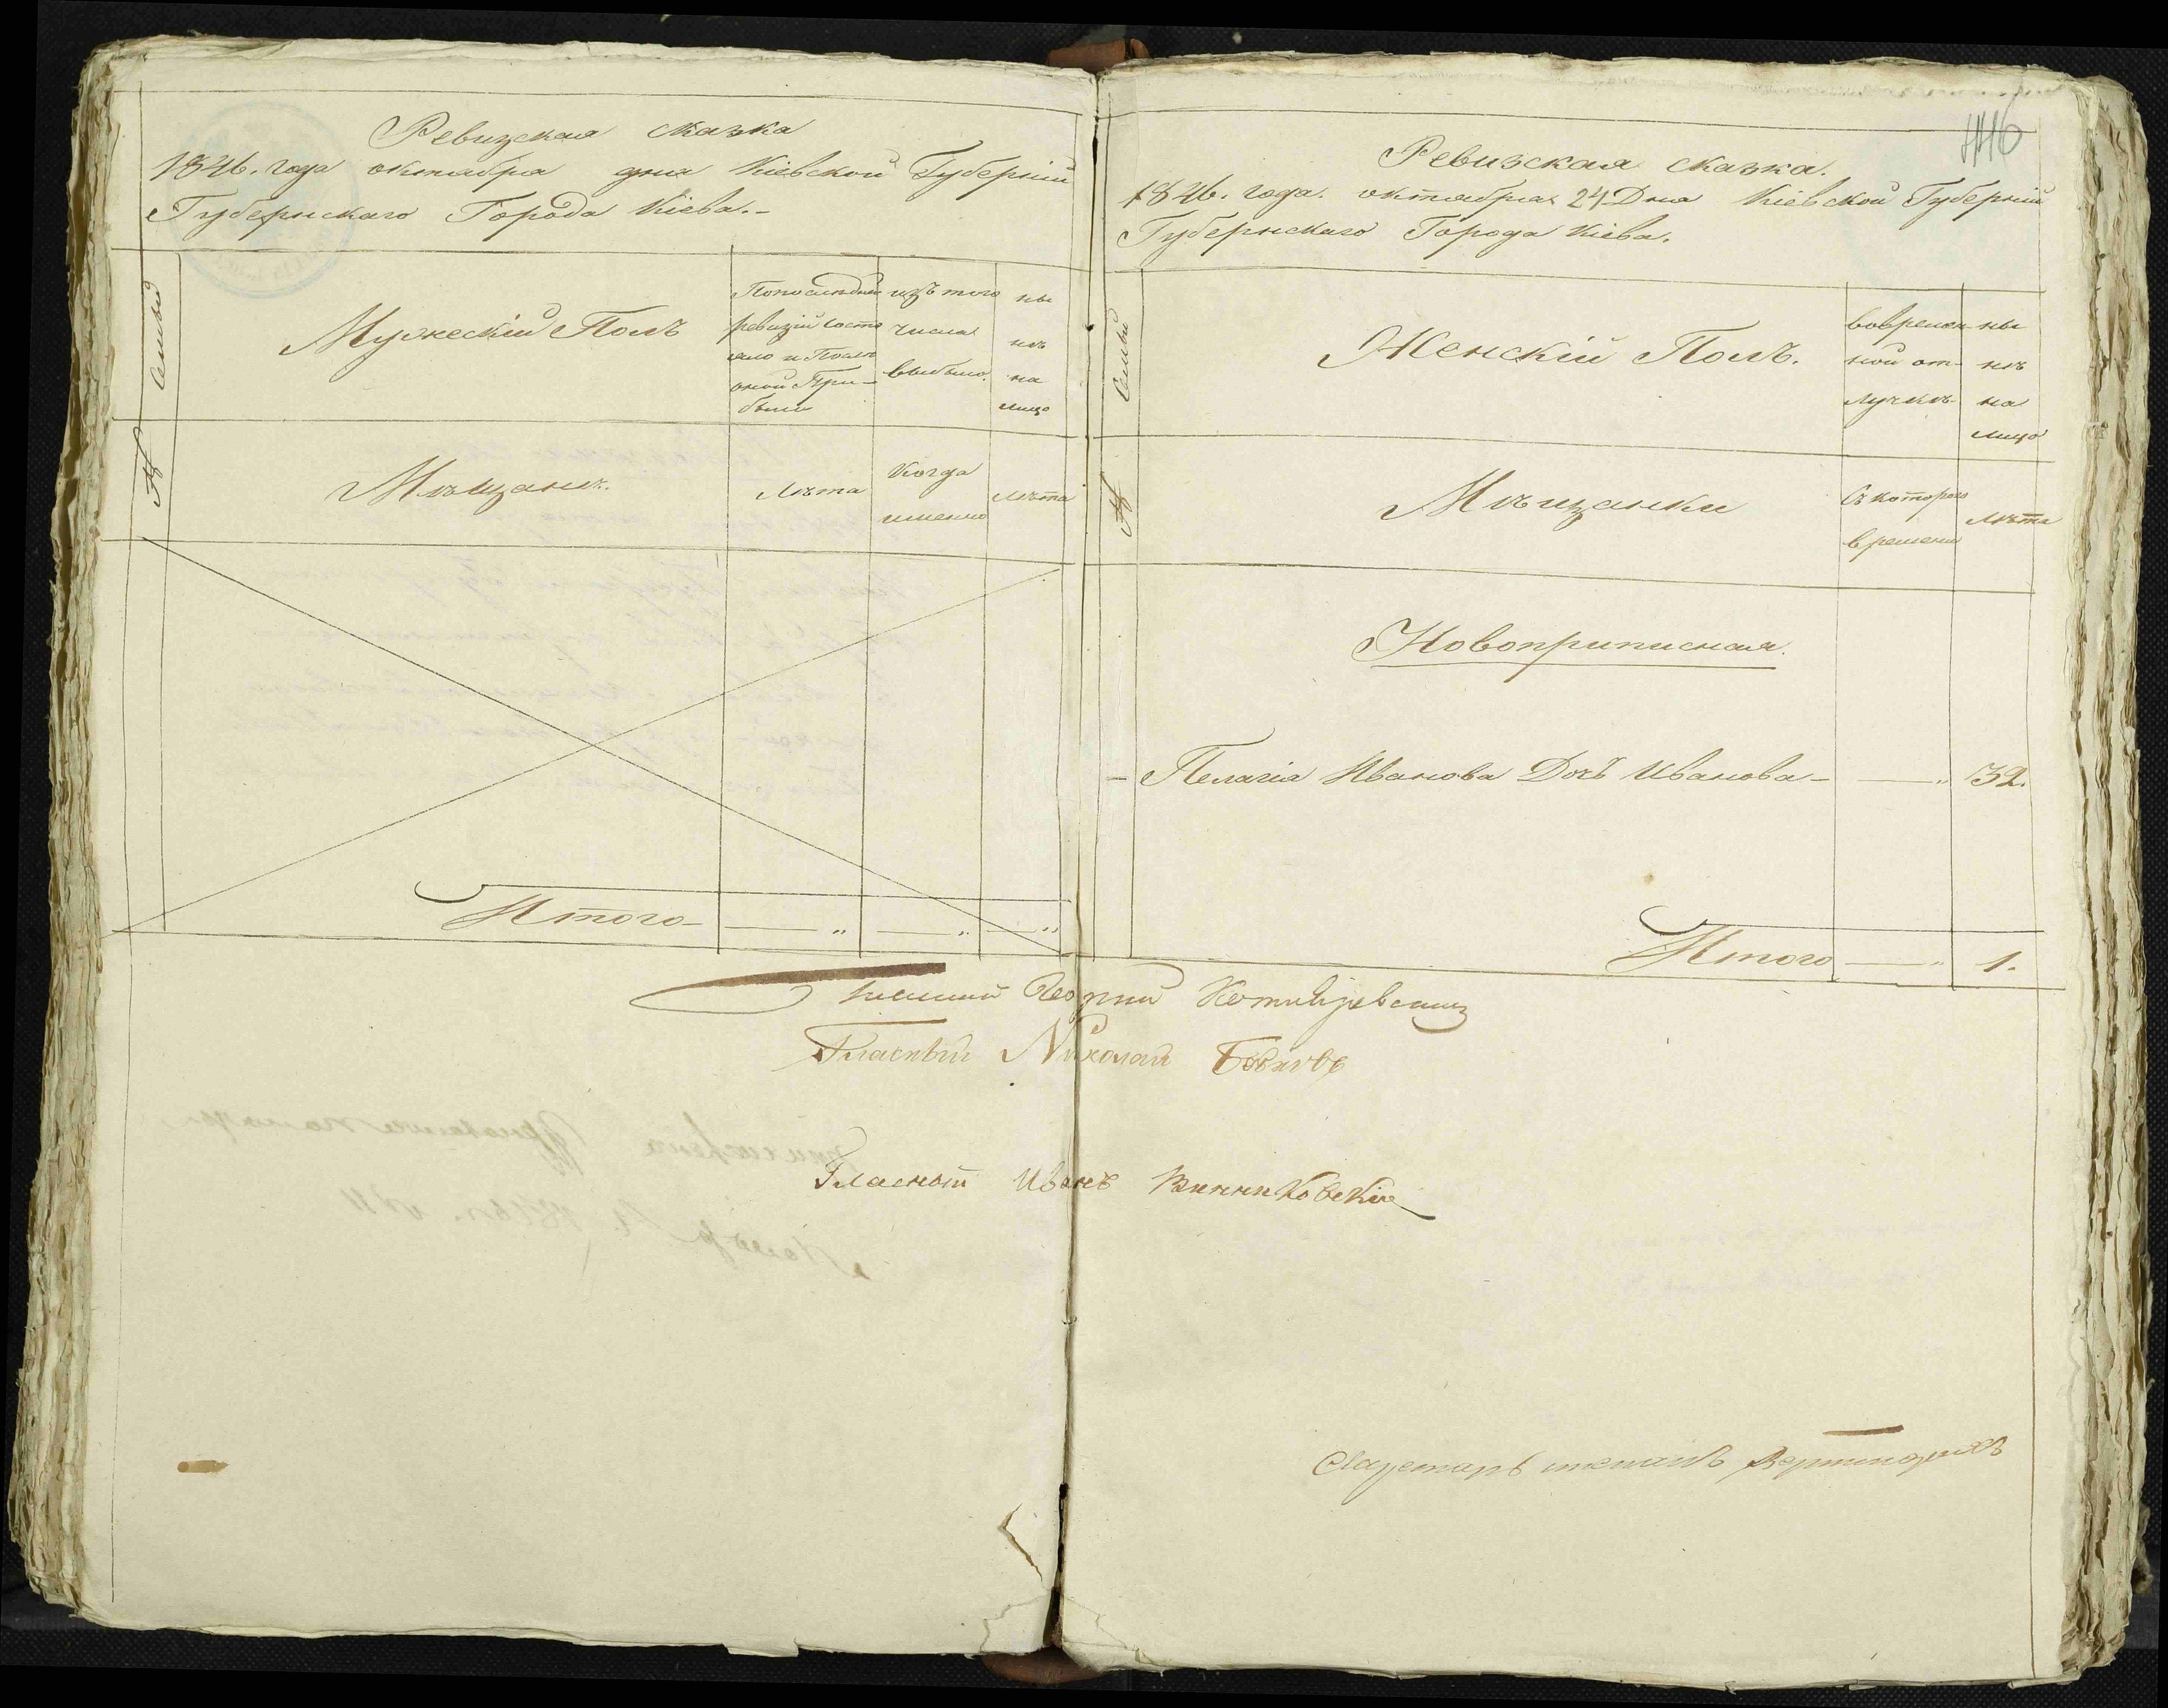 Ревизская сказка
1846. года октября дня Кіевской Губерніи
Губернскаго Города Кіева.-
№ Семьи
Мужескій Полъ
По последней
ревизіи состо
яло и После
оной При-
были
изъ того
числа
выбыло.
ны
нѣ
на
лицо
Мѣщане.
Лѣта
Когда
именно
Лѣта
Итого
446
Ревизская сказка.
1846. года. октября 24 Дня Кіевской Губерніи
Губернскаго Города Кіева.
№ Семьи
Женскій Полъ.
вовремен-
ной от-
лучкѣ
ны
нѣ
на
лицо
Мѣщанки
Съ котораго
времени
Лѣта
Новоприписная.
Пелагія Иванова Дочь Иванова — „ 32.
Итого — „ 1.
Гласный Николай
Гласный Иванъ Винниковскій
Секретарь